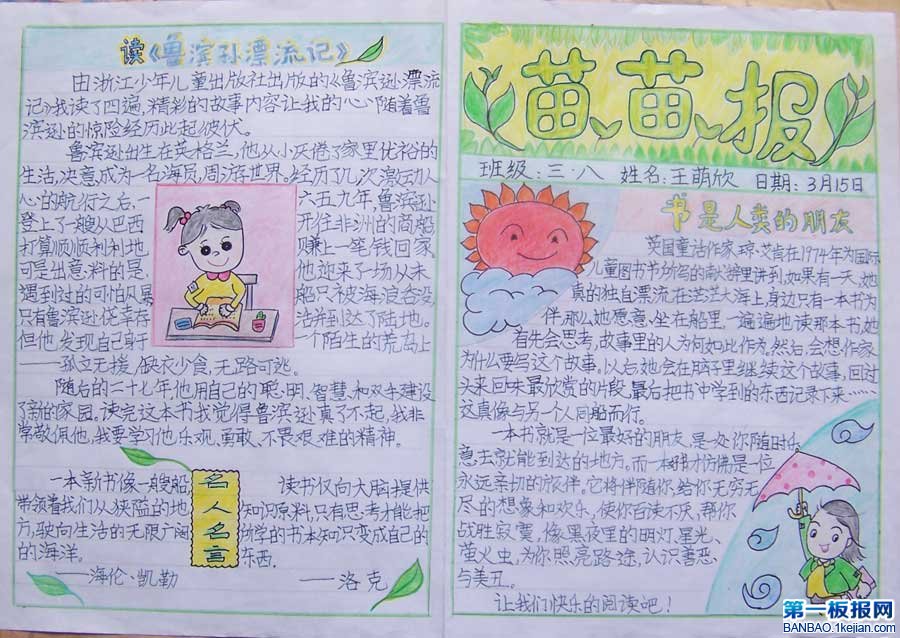 读《鲁滨孙漂流记》
由浙江少年儿童出版社出版的《鲁滨逊漂流
记》我读了四遍,精彩的故事内容让我的心随着鲁
滨逊的惊险经历此起彼伏。
鲁滨逊出生在英格兰,他从小厌倦了家里优裕的
生活,决意成为一名海员,周游世界。经历了几次激动人
心的航行之后,一六五九年,鲁滨逊
登上了一艘从巴西开往非洲的商船
打算顺顺利利地赚上一笔钱回家
可是出意料的是,他迎来了一场从未
遇到过的可怕风暴船只被海浪吞没
只有鲁滨逊侥幸存活并到达了陆地。
但他发现自己身于一个陌生的荒岛上
——孤立无援,缺衣少食,无路可逃。
随后的二十七年他用自己的聪明、智慧和双手建设
了新的家园。读完这本书我觉得鲁滨逊真了不起,我非
常敬佩他,我要学习他乐观、勇敢、不畏艰难的精神。
一本新书像一艘船
带领着我们从狭隘的地
方,驶向生活的无限广阔
的海洋。
——海伦·凯勒
名人名言
读书仅向大脑提供
知识原料,只有思考才能把
所学的书本知识变成自己的
东西.
——洛克
苗苗报
班级:三·八 姓名:王萌欣 日期:3月15日
书是人类的朋友
英国童话作家琼·艾肯在1974年为国际
儿童图书节所写的献辞里讲到,如果有一天,她
真的独自漂流在茫茫大海上,身边只有一本书为
伴,那么她愿意坐在船里,一遍遍地读那本书,她
首先会思考,故事里的人为何如此作为。然后,会想作家
为什么要写这个故事,以后她会在脑子里继续这个故事,回过
头来回味最欣赏的片段,最后把书中学到的东西记录下来……
这真像与另一个人同船而行。
一本书就是一位最好的朋友,是一处你随时乐
意去就能到达的地方。而一本好书,仿佛是一位
永远亲切的旅伴。它将伴随你,给你无穷无
尽的想象和欢乐,使你百读不厌,帮你
战胜寂寞,像黑夜里的明灯、星光、
萤火虫,为你照亮路途,认识善恶
与美丑。
让我们快乐的阅读吧!
第一板报网
BANBAO.1kejian.com